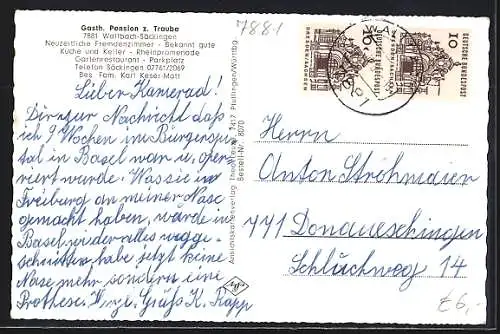 Gasth. Pension z. Traube
7881 Wallbach-Säckingen
Neuzeitliche Fremdenzimmer - Bekannt gute
Küche und Keller - Rheinpromenade
Gartenrestaurant - Parkplatz
Telefon Säckingen 07761/2069
Bes. Fam. Karl Keser-Matt
Lieber Kamerad!
Dir zur Nachricht daß
ich 9 Wochen im Bürgerspi-
tal in Basel war u. ope-
riert wurde. Was sie in
Freiburg an meiner Nase
gemacht haben, wurde in
Basel wieder alles wegge-
schnitten habe jetzt keine
Nase mehr sondern eine
Prothese. Gruß K. Rapp
7881
Ansichtskartenverlag 7417 Pfullingen/Württbg.
Bestell-Nr. 8070
DEUTSCHE BUNDESPOST
10
DRESDEN
Herrn
Anton Ströhmaier
771 Donaueschingen
Schluchweg 14
€6,-